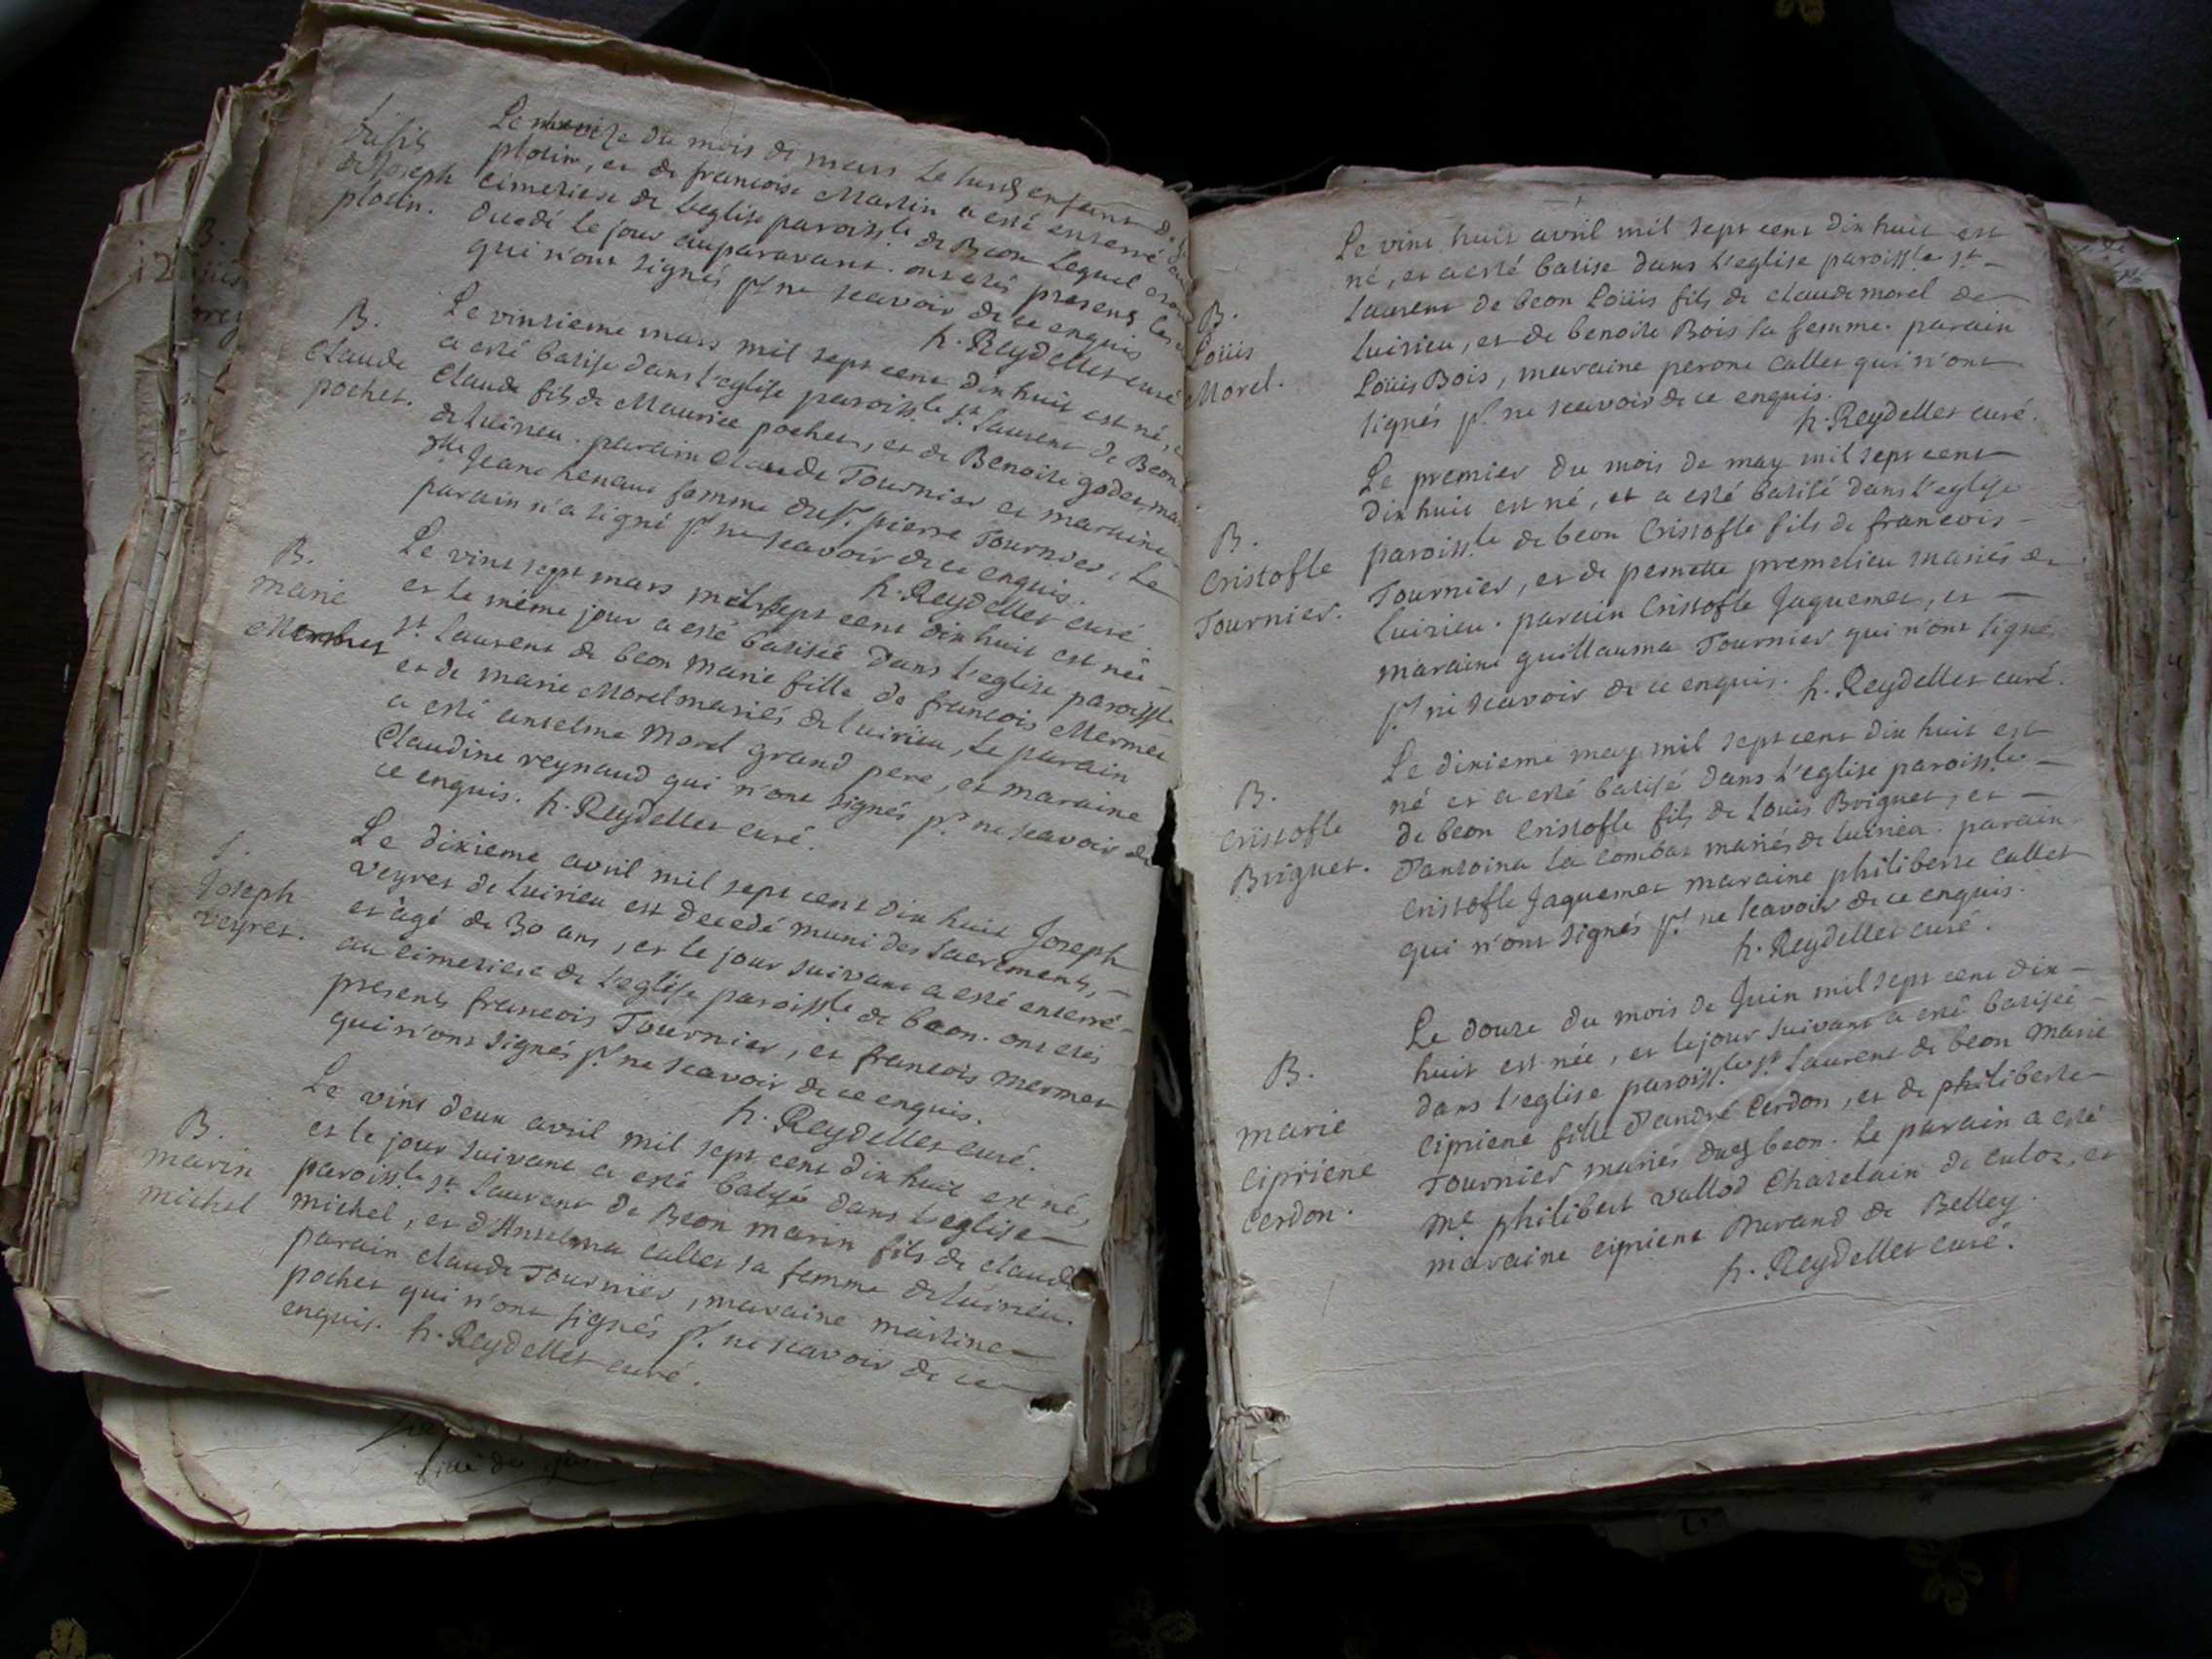 du fils
de Joseph
plotin.
Le du mois de mars le susd enfant
plotin, et de francoise Martin a esté enterré
cimetiere de l'eglise paroiss.le de Beon lequel
decedé le jour auparavant. ont estés presens les
qui n'ont signés p.r ne scavoir de ce enquis
h. Reydellet curé
B.
Claude
pochet.
Le vintieme mars mil sept cent dix huit est né, e
a esté batisé dans l'eglise paroiss.le st. Laurent de Beon
Claude fils de Maurice pochet, et de Benoite godet, ma
de luirieu. parain Claude Tournier et maraine
d.lle Jeane henaut femme du s.r pierre Tournier, le
parain n'a signé p.r ne scavoir de ce enquis.
h. Reydellet curé
B.
marie
Mermet
Le vint sept mars mil sept cent dix huit est née
et le même jour a esté batisée dans l'eglise paroiss.le
st. Laurent de beon Marie fille de francois Mermet
et de marie Morel mariés de luirieu, le parain
a esté anselme Morel grand pere, et maraine
Claudine reynaud qui n'ont signés p.r ne scavoir de
ce enquis. h. Reydellet curé.
S.
Joseph
veyret.
Le dixieme avril mil sept cent dix huit Joseph
veyret de luirieu est decedé muni des sacrements,
et âgé de 30 ans, et le jour suivant a esté enterré
au cimetiere de l'eglise paroiss.le de beon. ont estés
presents francois Tournier, et francois mermet
qui n'ont signés p.r ne scavoir de ce enquis.
h. Reydellet curé.
B.
marin
michel
Le vint deux avril mil sept cent dix huit est né,
et le jour suivant a esté batisé dans l'eglise
paroiss.le st. Laurent de Beon marin fils de claude
michel, et d'Anselma callet sa femme de luirieu.
parain claude Tournier, maraine martine
pochet qui n'ont signés p.r ne scavoir de ce
enquis. h. Reydellet curé.
B.
Loüis
Morel.
Le vint huit avril mil sept cent dix huit est
né, et a esté batise dans l'eglise paroiss.le st.
Laurent de beon Loüis fils de claude morel de
luirieu, et de benoite Bois sa femme. parain
Loüis Bois, maraine perone Callet qui n'ont
signés p.r ne scavoir de ce enquis.
h. Reydellet curé.
B.
Cristofle
Tournier.
Le premier du mois de may mil sept cent
dix huit est né, et a esté batisé dans l'eglise
paroiss.le de beon Cristofle fils de francois
Tournier, et de pernette premelieu mariés de
luirieu. parain Cristofle Jaquemet, et
maraine guillauma Tournier qui n'ont signé
p.r ne scavoir de ce enquis. h. Reydellet curé.
B.
Cristofle
Briguet.
Le dixieme may mil sept cent dix huit est
né et a esté batisé dans l'eglise paroiss.le
de beon Cristofle fils de Louis Briguet, et
d'antoina la combat mariés de luirieu. parain
Cristofle Jaquemet maraine philiberte callet
qui n'ont signés p.r ne scavoir de ce enquis.
h. Reydellet curé.
B.
marie
cipriene
Cerdon.
Le douze du mois de Juin mil sept cent dix
huit est née, et le jour suivant a esté batisée
dans l'eglise paroiss.le st. Laurent de beon Marie
Cipriene fille d'andré Cerdon, et de philiberte
Tournier mariés dud beon. Le parain a esté
m.e philibert vallod Chatelain de culoz, et
maraine cipriene Durand de Belley.
h. Reydellet curé.